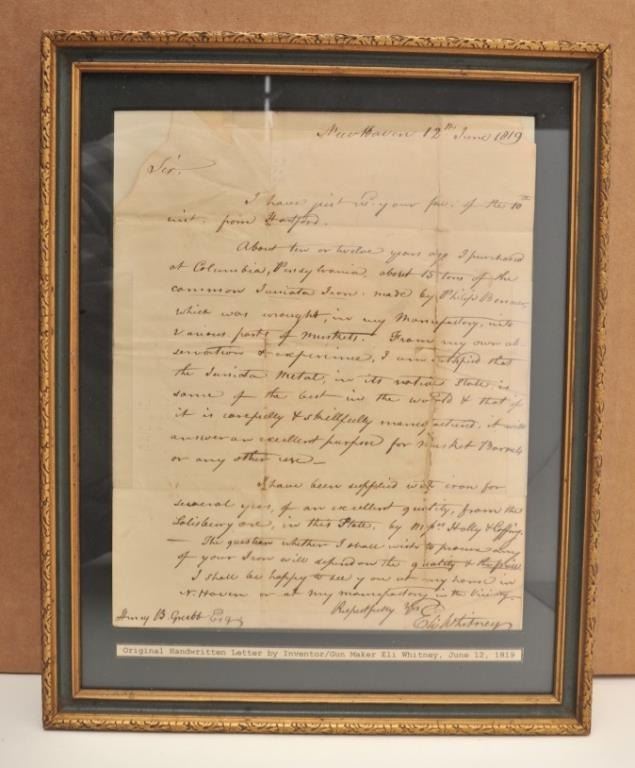 New Haven 12th June 1819
Sir.
I have just recd. your fav. of the 10th
inst. from Hartford.
About ten or twelve years ago I purchased
at Columbia, Pensylvania, about 15 tons of the
common Juniata Iron made by Philip Benner,
which was wrought, in my Manufactory, into
various parts of muskets. From my own ob
servation & experience, I am satisfied that
the Juniata Metal, in its native State, is
some of the best in the world & that if
it is carefully & skillfully manufactured, it will
answer an excellent purpose for Musket Barrels
or any other use—
I have been supplied with iron for
several years, of an excellent quality, from the
Salisbury ore, in this State, by Holly & Coffing.
— The question whether I shall wish to procure any
of your Iron will depend on the quality & the price
I shall be happy to see you at my house in
N. Haven or at my manufactory in the Vicinity—
Respectfully Yrs
Eli Whitney
Henry B. Grubb Esqr
Original Handwritten Letter by Inventor/Gun Maker Eli Whitney, June 12, 1819